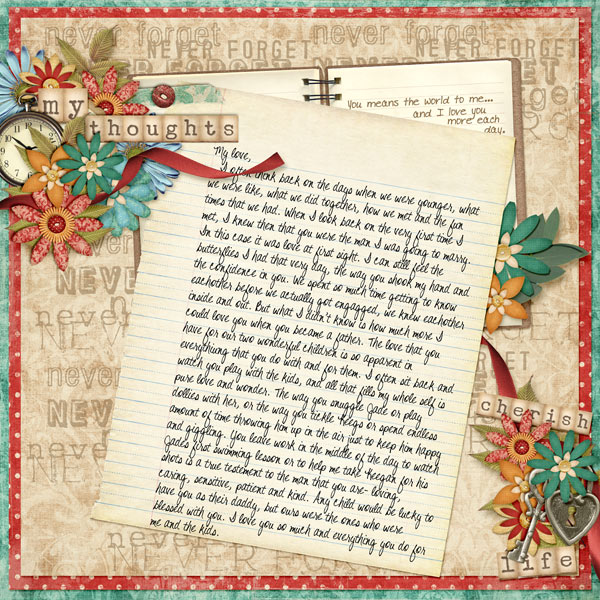 never forget
NEVER FORGET
NEVER FORGET
my
thoughts
You means the world to me...
and I love you
more each
day.
My love,
I often think back on the days when we were younger, what
we were like, what we did together, how we met and the fun
times that we had. When I look back on the very first time I
met, I knew then that you were the man I was going to marry.
In this case it was love at first sight. I can still feel the
butterflies I had that very day, the way you shook my hand and
the confidence in you. We spent so much time getting to know
eachother before we actually got engagged, we knew eachother
inside and out. But what I didn't know is how much more I
could love you when you became a father. The love that you
have for our two wonderful children is so apparent in
everythimg that you do with and for them. I often sit back and
watch you play with the kids, and all that fills my whole self is
pure love and wonder. The way you snuggle Jade or play
dollies with her, or the way you tickle Keegs or spend endless
amount of time throwing him up in the air just to keep him happy
and giggling. You leave work in the middle of the day to watch
Jades first swimming lesson or to help me take Keegan for his
shots is a true testement to the man that you are- loving,
caring, sensitive, patient and kind. Any child would be lucky to
have you as their daddy, but ours were the ones who were
blessed with you. I love you so much and everything you do for
me and the kids.
NEVER
never
NEVER
never forget
cherish
life
never forget
NEVER FORGET